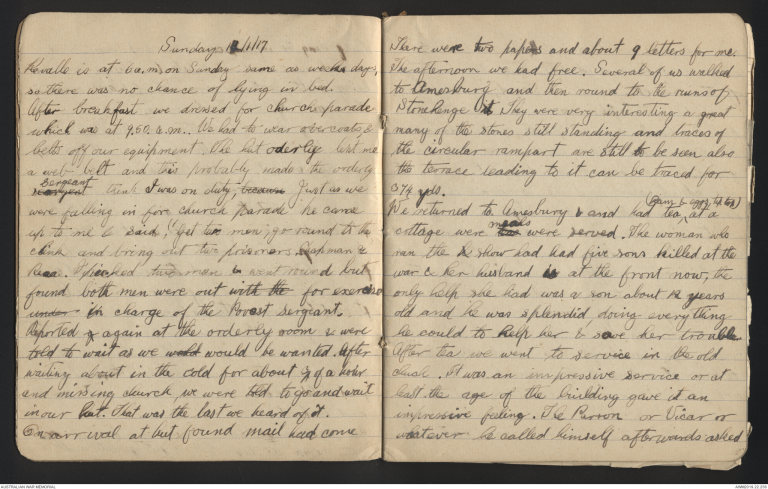 Sunday 1/1/17
Revalle is at 6 a.m. on Sunday same as week days,
so there was no chance of lying in bed.
After breakfast we dressed for church parade
which was at 9.50 a.m. We had to wear overcoats &
belts off our equipment. The hut orderly lent me
a web belt and this probably made the orderly
Sergeant
sergeant think I was on duty, because Just as we
were falling in for church parade he came
up to me & said, "get two men, go round to the
clink and bring out two prisoners, Chapman &
Rea. I picked two men & went round but
found both men were out with the for exercise
under in charge of the Povost sergiant.
Reported again at the orderly room & were
told to wait as we would would be wanted. After
waiting about in the cold for about of a hour
and missing church, we were told to go and wait
in our hut. That was the last we heard of it.
On arrival at hut found mail had come
There were two papers and about 9 letters for me.
The afternoon we had free. Several of us walked
to Amesburg and then round to the ruins of
Stone Henge They were very interesting a great
many of the stones still standing and traces of
the circular rampart are still to be seen also
the terrace leading to it can be traced for
574 yds.
We returned to Amesbury & and had tea, at a
cottage were meals were served. The woman who
ran the show had had five sons killed at the
war & her husband is at the front now, the
only help she had was a son about 12 years
old and he was splendid doing everything
he could to help her & save her trouble.
After tea we went to service in the old
chuch. It was an impressive service or at
least the age of the building gave it an
impressive feeling. The Parson or Vicar or
whatever he called himself afterwards asked
AUSTRALIAN WAR MEMORIAL